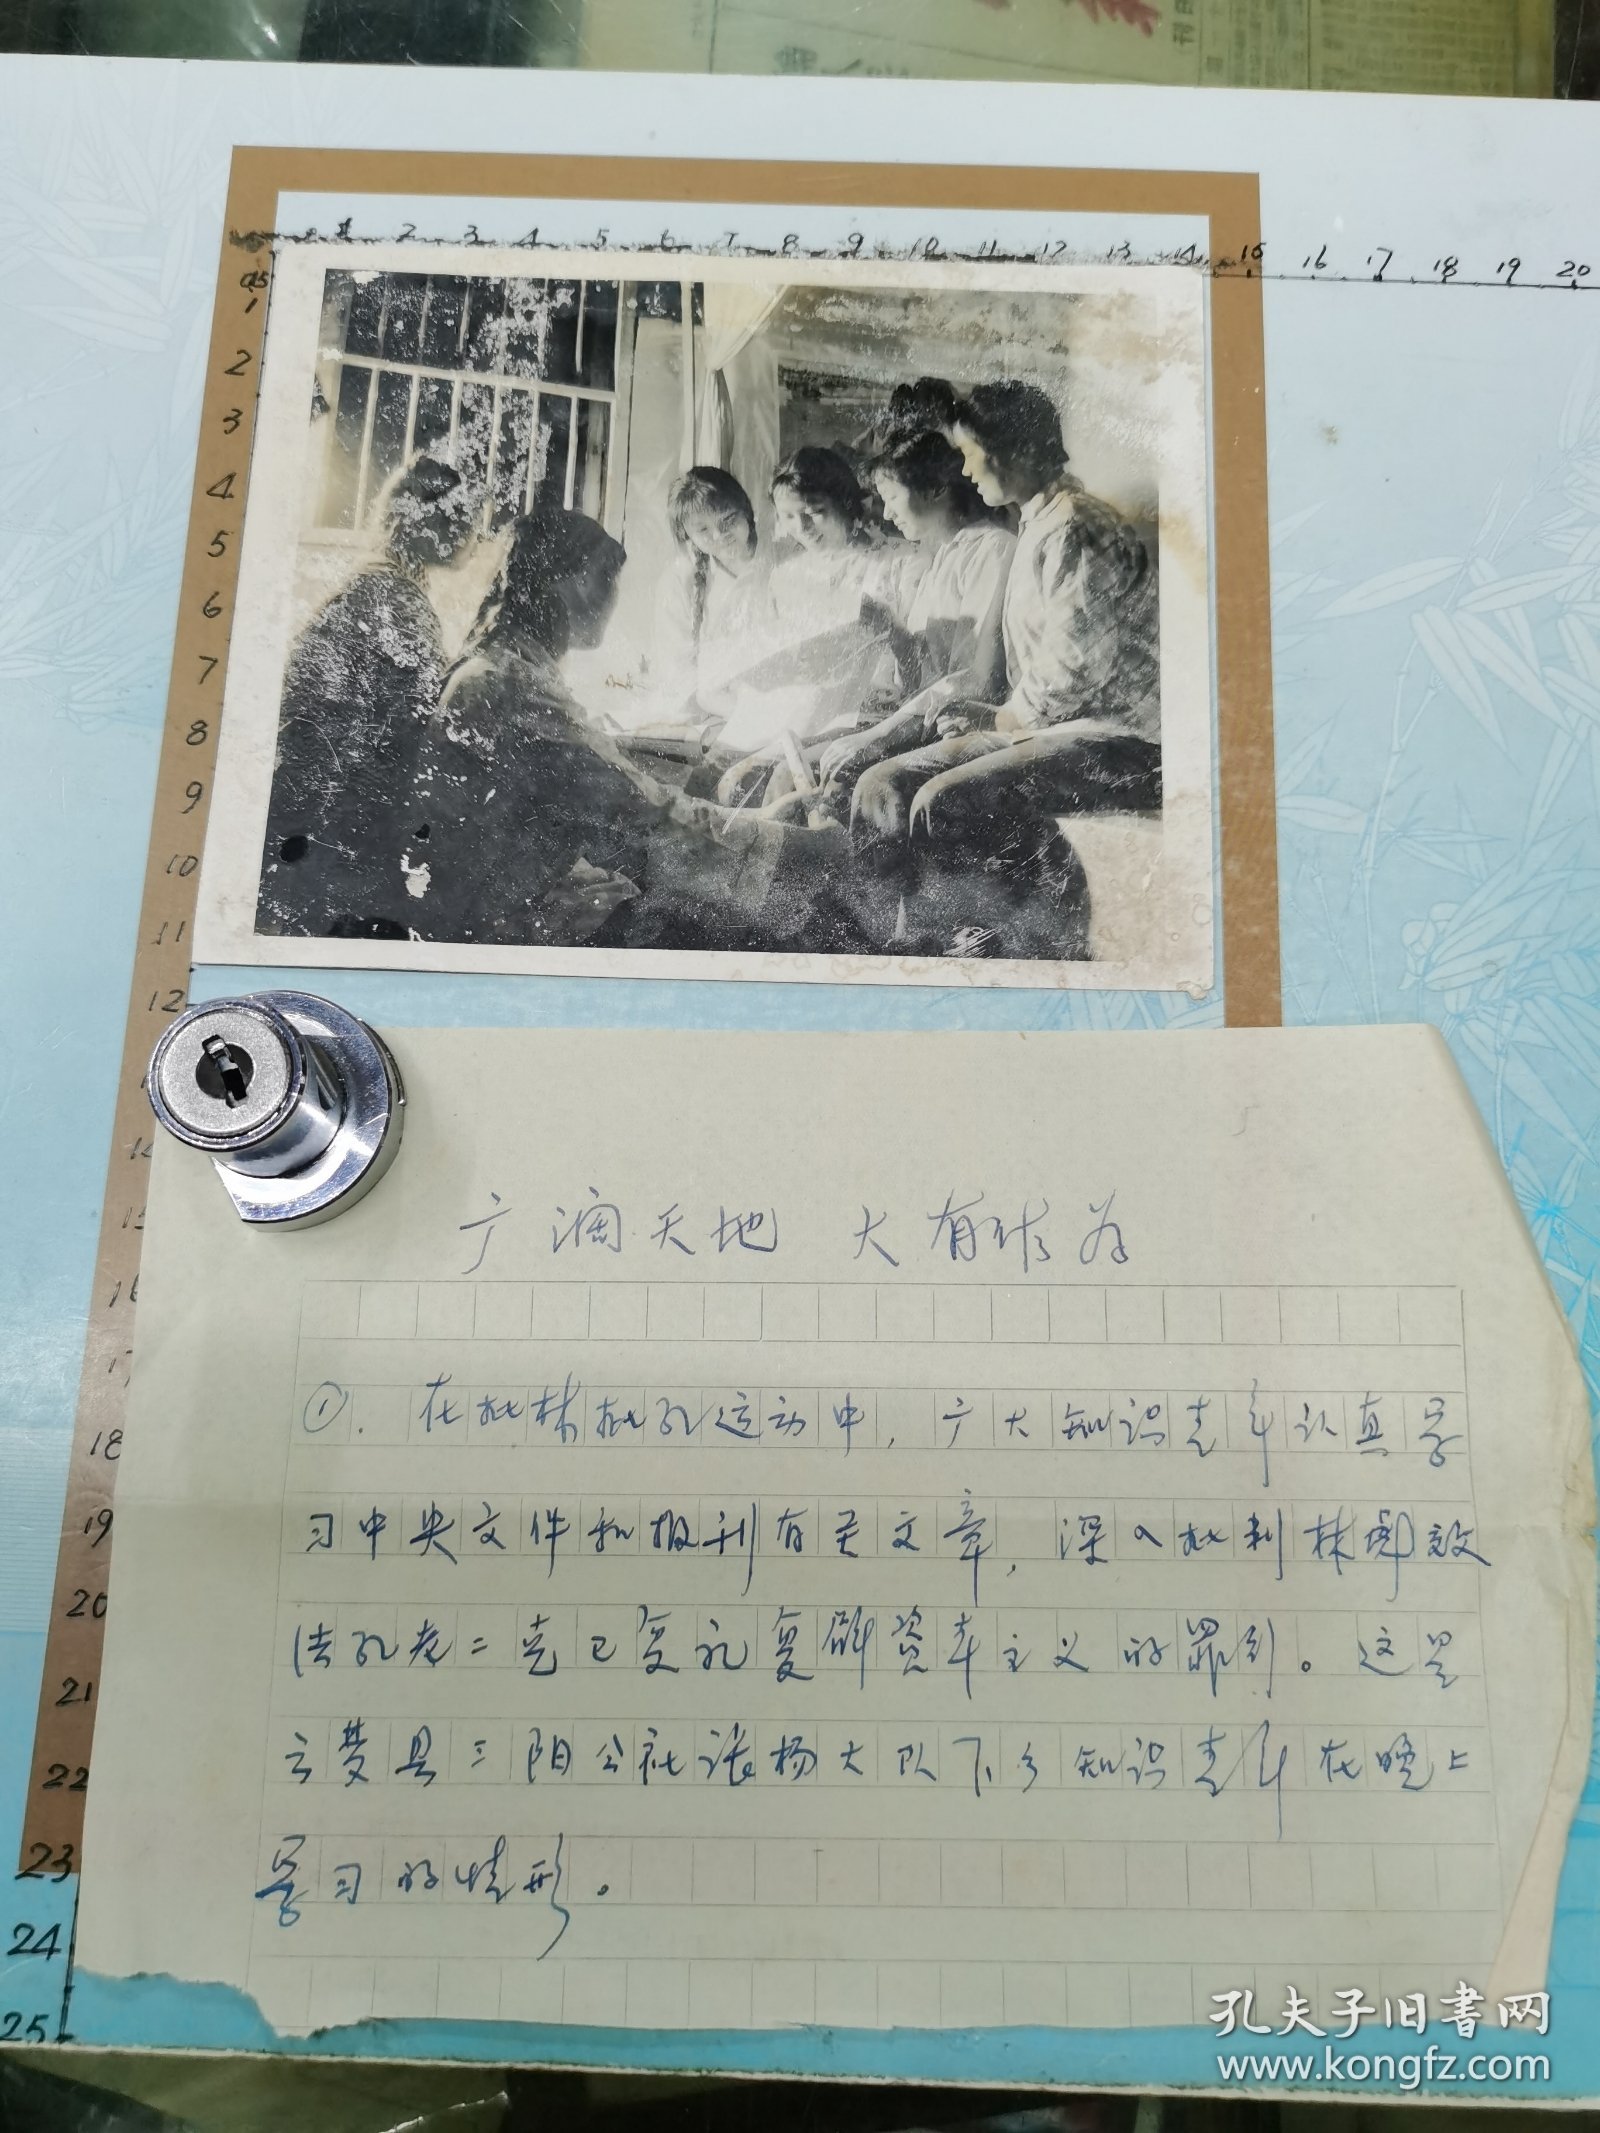 刊
1 2 3 4 5 6 7 8 9 10 11 12 13 14 15 16 17 18 19 20
0.5
1
2
3
4
5
6
7
8
9
10
11
12
14
15
16
17
18
19
20
21
22
23
24
25
广阔天地 大有作为
①. 在批林批孔运动中,广大知识青年认真学
习中央文件和报刊有关文章,深入批判林彪效
法孔老二克己复礼复辟资本主义的罪行。这是
云梦县三阳公社张杨大队下乡知识青年在晚上
学习的情形。
孔夫子旧书网
www.kongfz.com